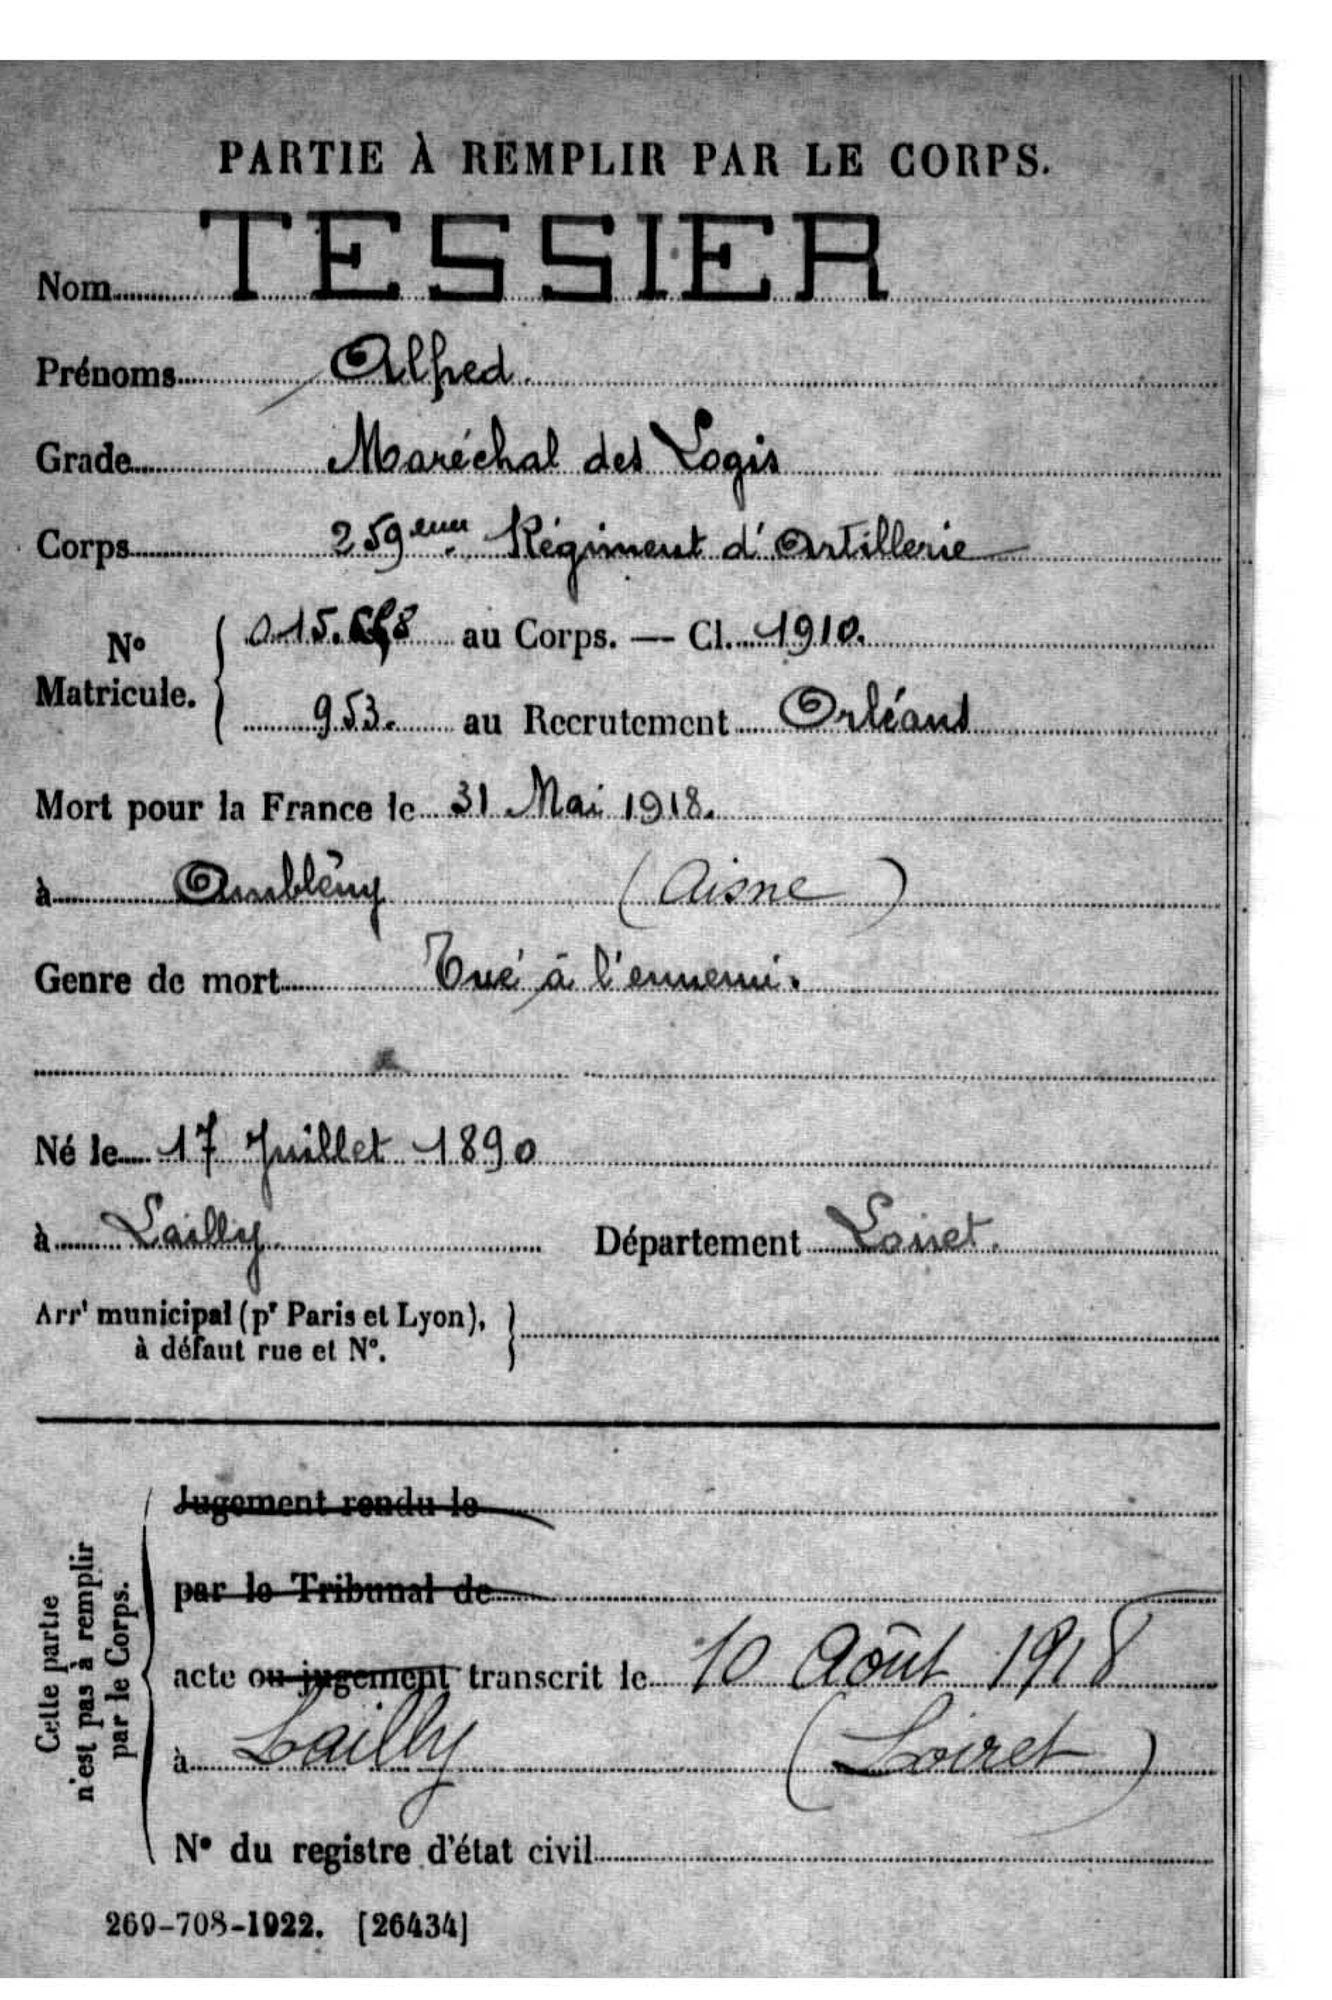 PARTIE À REMPLIR PAR LE CORPS.
Nom TESSIER
Prénoms Alfred
Grade Maréchal des Logis
Corps 259eme Régiment d'Artillerie
N° Matricule. au Corps. — Cl. 1910.
953. au Recrutement Orléans
Mort pour la France le 31 Mai 1918.
à Amblény (Aisne)
Genre de mort Tué à l'ennemi.
Né le 17 Juillet 1890
à Lailly Département Loiret.
Arrt municipal (pr Paris et Lyon),
à défaut rue et N°.
Cette partie
n'est pas à remplir
par le Corps.
Jugement rendu le
par le Tribunal de
acte ou jugement transcrit le 10 Août 1918
à Lailly (Loiret)
N° du registre d'état civil
269-708-1922. [26434]